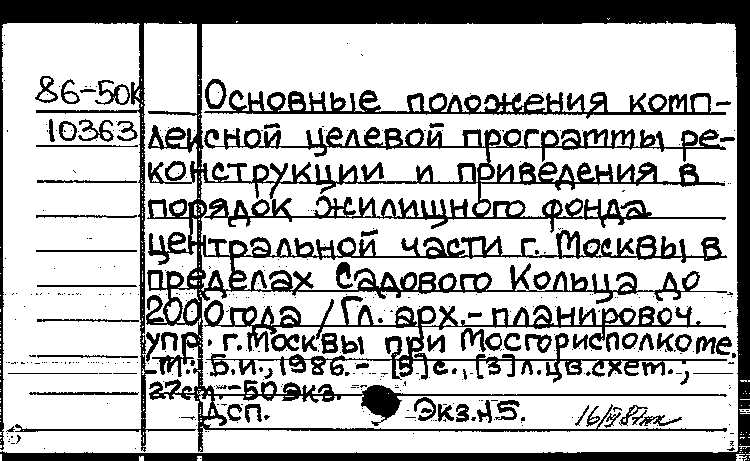 86-50К Основные положения комп-
10363 лексной целевой программы ре-
конструкции и приведения в
порядок жилищного фонда
центральной части г. Москвы в
пределах Садового Кольца до
2000 года / Гл. арх.-планировоч.
упр. г. Москвы при Мосгорисполкоме.
-М.: Б.и., 1986.- [5]с., [3]л.цв.схем.;
27см.-50 экз.
Дсп. Экз.N5.